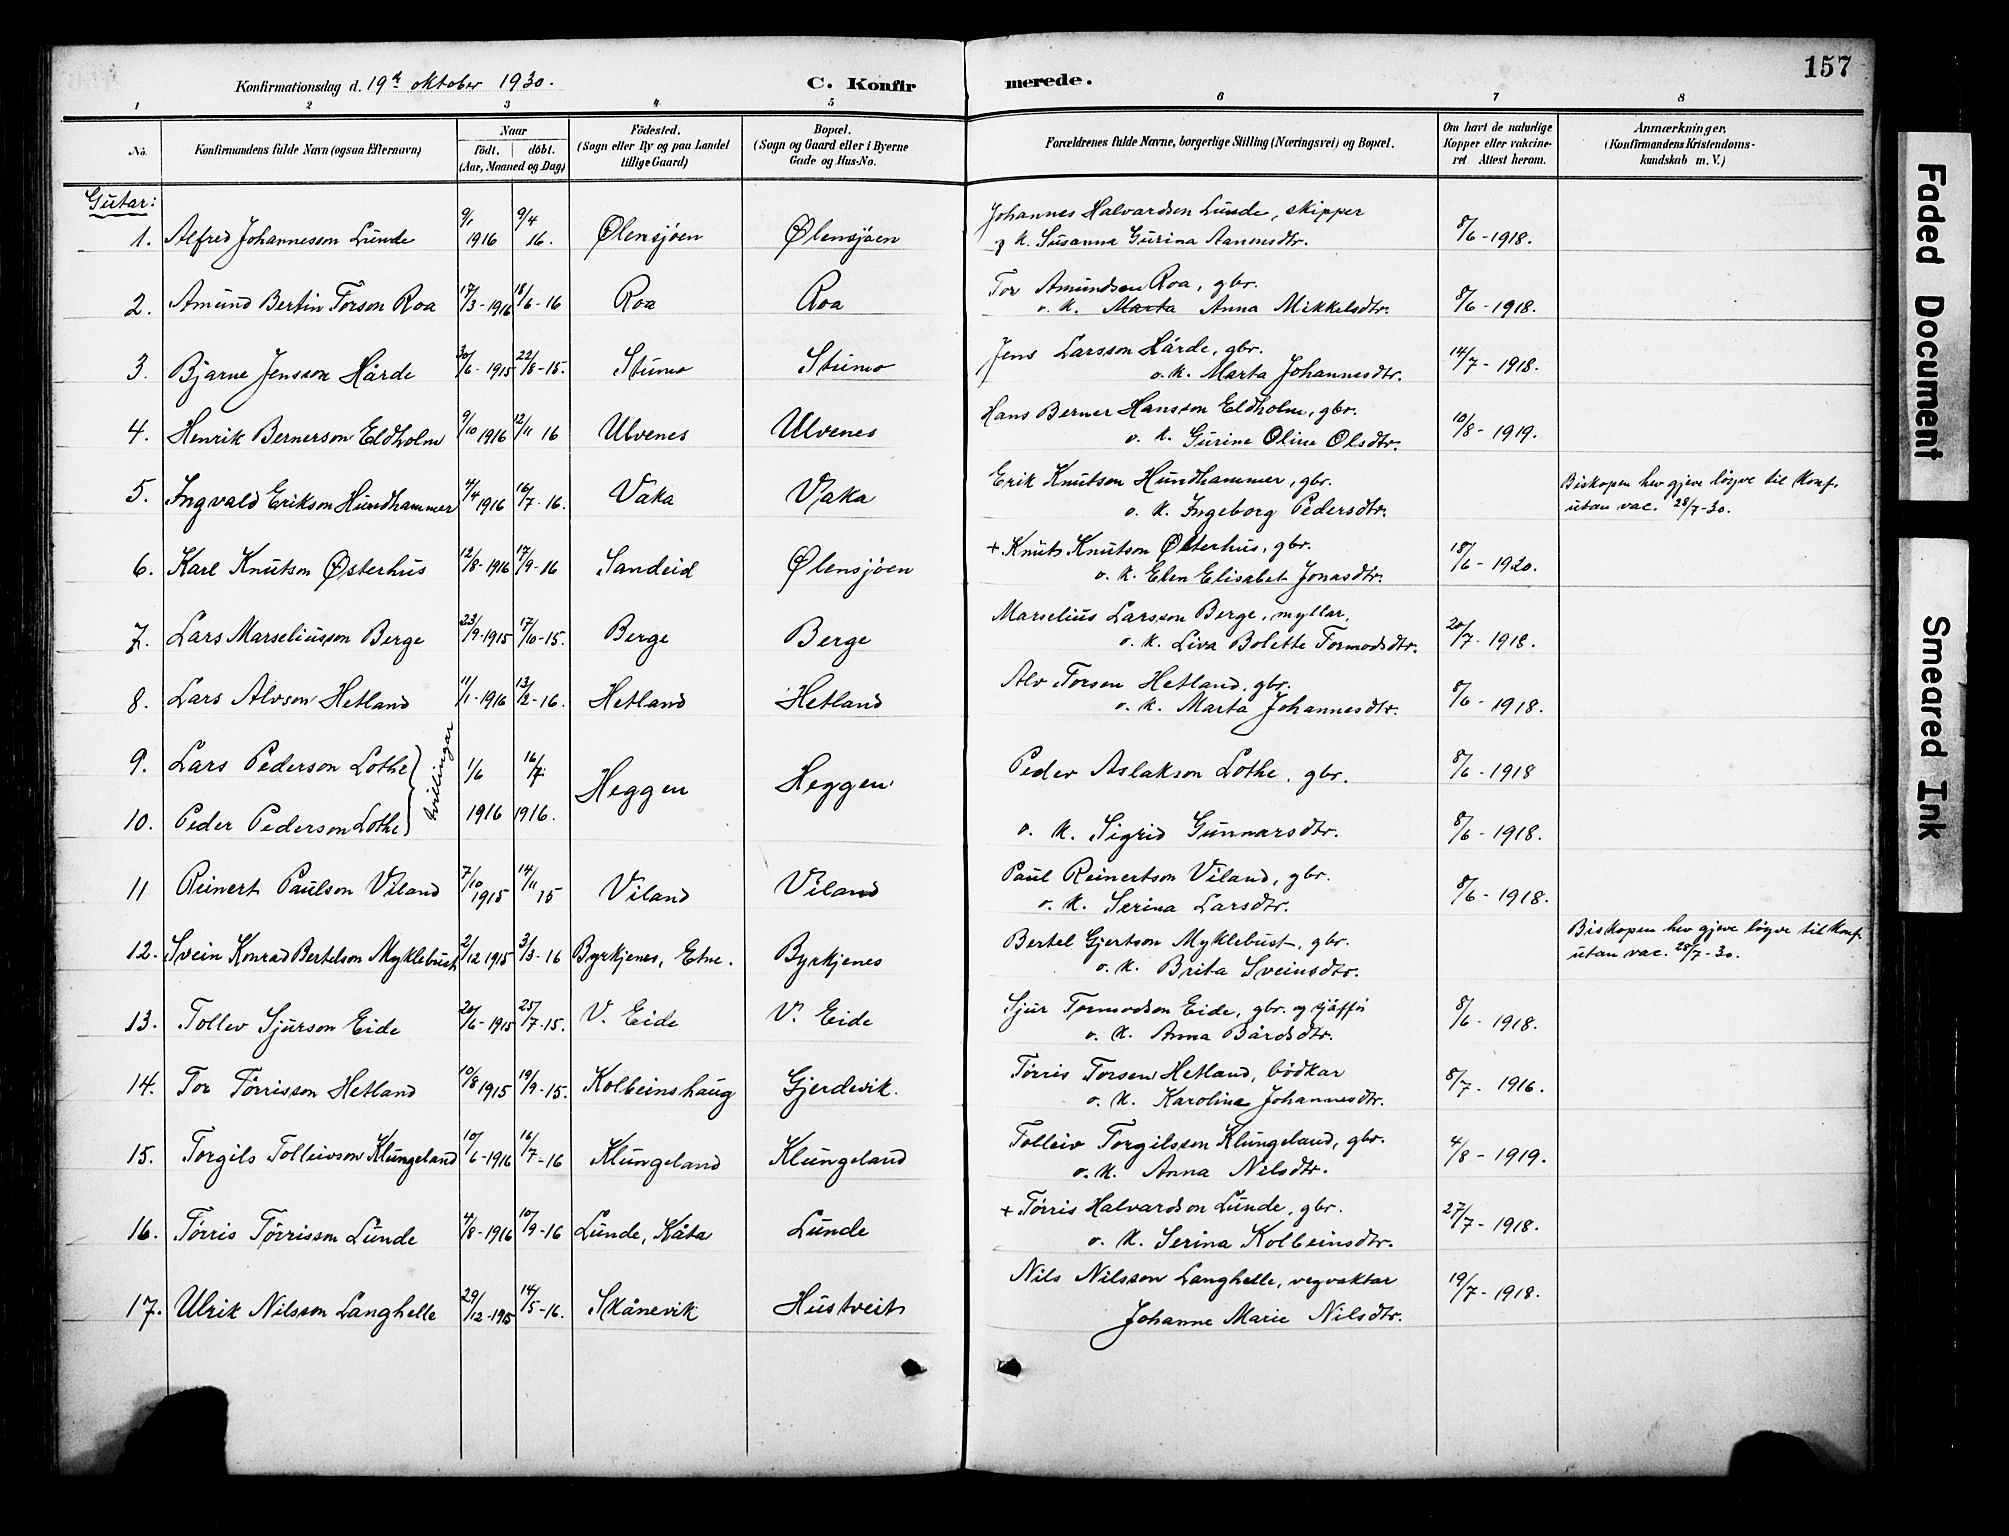 Konfirmationsdag d. 19de oktober 1930.
C. Konfir
merede.
157
1 2 3 4 5 6 7 8
No.
Konfirmandens fulde Navn (ogsaa Efternavn)
Naar
født. | døbt.
(Aar, Maaned og Dag)
Fødested.
(Sogn eller By og paa Landet
tillige Gaard)
Bopæl.
(Sogn og Gaard eller i Byerne
Gade og Hus-No.
Forældrenes fulde Navne, borgerlige Stilling (Næringsvei) og Bopæl.
Om havt de naturlige
Kopper eller vakcine-
ret Attest herom.
Anmærkninger,
(Konfirmandens Kristendoms-
kundskab m. V.)
Gutar:
1. Alfred Johannesson Lunde 9/1 1916 9/4 16. Ølensjøen Ølensjøen Johannes Halvardsen Lunde, skipper
o. k. Susanna Gurina Aanensdtr. 8/6 - 1918.
2. Amund Bertin Torson Roa 17/3 - 1916 18/6 - 16 Roa Roa Tor Amundsen Roa, gbr.
o. k. Marta Anna Mikkelsdtr. 8/6 - 1918.
3. Bjarne Jensson Hårde 30/6 - 1915 22/8 - 15. Stumo Stumo Jens Larsson Hårde, gbr.
o. k. Marta Johannesdtr. 14/7 - 1918.
4. Henrik Bernerson Eldholm 9/10 1916 12/11 16 Ulvenes Ulvenes Hans Berner Hansson Eldholm, gbr.
o. k. Gurine Oline Olsdtr. 10/8 - 1919.
5. Ingvald Erikson Hundhammer 4/4 1916 16/7 - 16. Vaka Vaka Erik Knutson Hundhammer, gbr.
o. k. Ingeborg Pedersdtr. Biskopen hev gjeve løyve til konf.
utan vac. 28/7 - 30.
6. Karl Knutson Østerhus 12/8 - 1916 17/9 - 16 Sandeid Ølensjøen + Knut Knutson Østerhus, gbr.
o. k. Elen Elisabet Jonasdtr. 18/6 - 1920.
7. Lars Marseliusson Berge 23/9 - 1915 17/10 - 15. Berge Berge Marselius Larsson Berge, myllar,
o. k. Liva Bolette Tormodsdtr. 20/7 - 1918.
8. Lars Alvson Hetland 11/1 - 1916 13/2 - 16. Hetland Hetland Alv Torsen Hetland, gbr.
o. k. Marta Johannesdtr. 8/6 - 1918.
9. Lars Pederson Lothe tvillingar 1/6 16/7 Heggen Heggen Peder Aslakson Lothe, gbr. 8/6 - 1918
10. Peder Pederson Lothe 1916 1916. o. k. Sigrid Gunnarsdtr. 8/6 - 1918.
11 Reinert Paulson Viland 7/10 1915 14/11 15 Viland Viland Paul Reinertson Viland, gbr.
o. k. Serina Larsdtr. 8/6 - 1918.
12. Svein Konrad Bertelson Myklebust 2/12 1915 3/3 - 16 Byrkjenes, Etne. Byrkjenes Bertel Gjertson Myklebust, gbr.
o. k. Brita Sveinsdtr. Biskopen hev gjeve løyve til konf.
utan vac. 28/7 - 30.
13. Tollev Sjurson Eide 20/6 - 1915 25/7 - 15. V. Eide V. Eide Sjur Tormodson Eide, gbr. og sjåfør
o. k. Anna Bårdsdtr. 8/6 - 1918.
14. Tor Tørrisson Hetland 10/8 1915 19/9 - 15. Kolbeinshaug Gjerdevik. Tørris Torsen Hetland, bødkar
o. k. Karolina Johannesdtr. 8/7 - 1916.
15. Torgils Tolleivson Klungeland 10/6 - 1916 16/7 - 16 Klungeland Klungeland Tolleiv Torgilsson Klungeland, gbr.
o. k. Anna Nilsdtr. 4/8 - 1919.
16. Tørris Tørrisson Lunde 4/8 - 1916 10/9 - 16 Lunde, Kåta Lunde + Tørris Halvardson Lunde, gbr.
o. k. Serina Kolbeinsdtr. 27/7 - 1918.
17. Ulrik Nilsson Langhelle 29/12 - 1915 14/5 - 16. Skånevik Hustveit Nils Nilsson Langhelle, vegvaktar
Johanne Marie Nilsdtr. 19/7 - 1918.
Faded Document
Smeared Ink